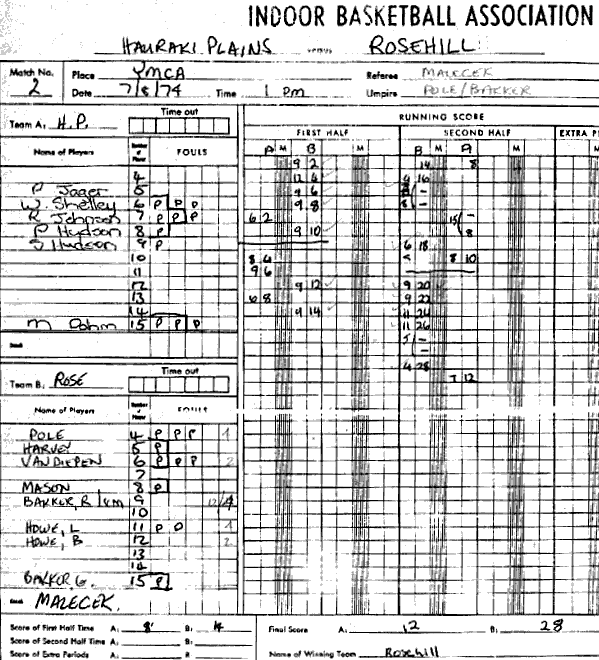 INDOOR BASKETBALL ASSOCIATION
HAURAKI PLAINS versus ROSEHILL
Match No. 2 Place YMCA Referee MALECEK
Date 7/8/74 Time 1 PM Umpire POLE/BAKKER
Time out
RUNNING SCORE
Team A: H.P.
FIRST HALF SECOND HALF EXTRA P
Name of Players Number of Player FOULS A M B M B M A M
4
P Jager 5
W. Shelley 6 P P P
R Johnson 7 P P P
P Hudson 8 P
S Hudson 9 P
10
11
12
13
14
M Dahm 15 P P P
9 2
12 4
9 6
9 8
6 2
9 10
8 4
9 6
9 12
6 8
9 14
14 8
4 16
8 -
15 -
8
6 18
8 10
9 20
9 22
11 24
11 26
5 -
-
4 28
7 12
Time out
Team B: ROSE
Name of Players Number of Player FOULS
POLE 4 P P P 1
HARVEY 5 P
VAN DIEPEN 6 P P P 2
7
MASON 8 P
BAKKER, R 9
10
HOWE, L 11 P 1
HOWE, B 12 2
13
14
BAKKER G. 15 P
MALECEK.
Score of First Half Time A: 8 B: 14 Final Score A: 12 B: 28
Score of Second Half Time A: B:
Score of Extra Periods A: B: Name of Winning Team Rosehill